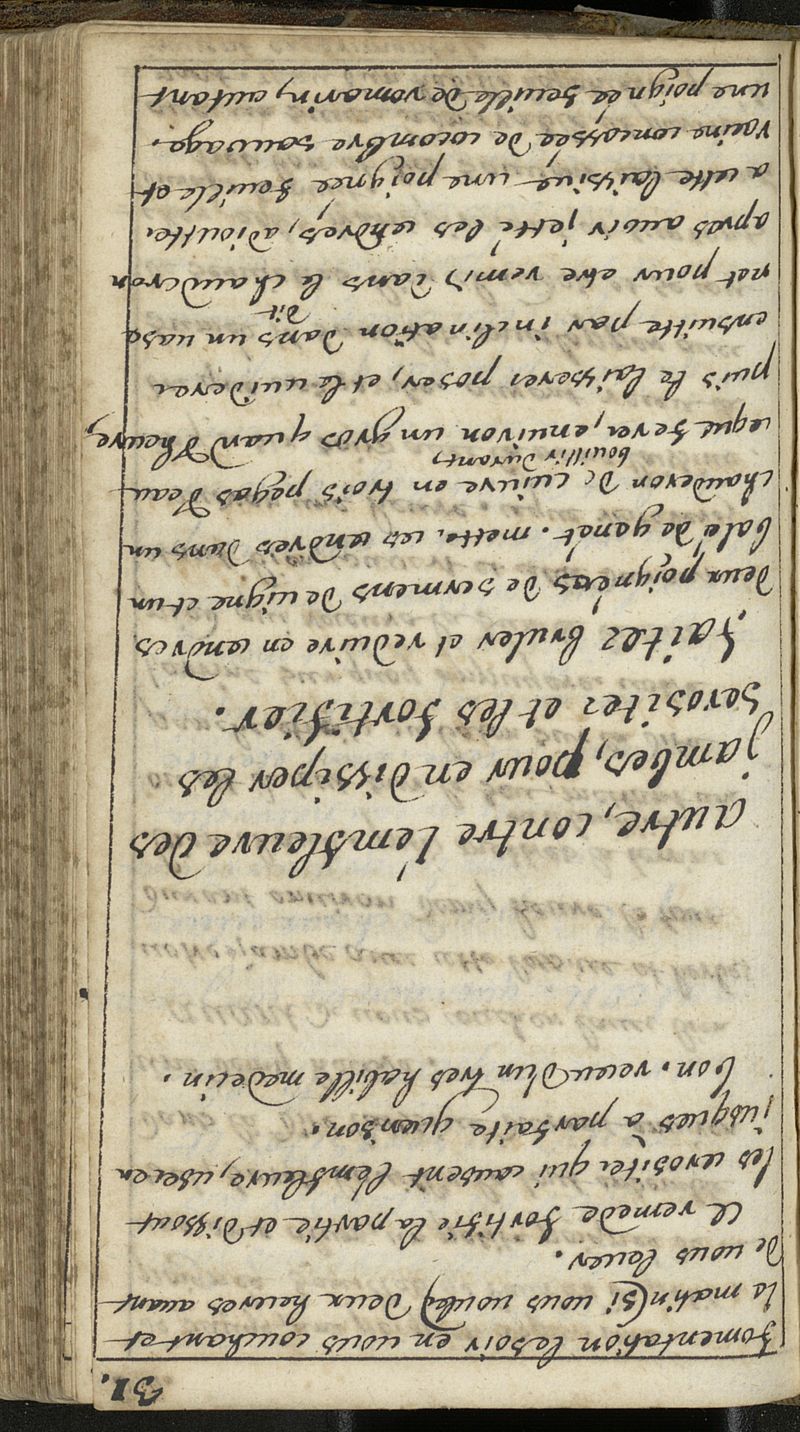 31.
fomentation le soir en vous couchant et
le matin (si vous voulés) deux heures avant
de vous lever.
Ce remede fortifie la partie et dissout
les serositez qui causent l'emfleure, user en
jusques à parfaite guerison.
bon. receu d'un tres habille medecin.
autre, contre l'emfleuve des
jambes, pour en dissiper les
serositez et les fortifier.
faitez bruler et reduire en cendres
deux poignées de sermens de vigne et un
balé de genet. mette ces cendres dans un
chauderon de cuivre en trois pegas d'eau
bouillir durant
que ferer, environ un gros quar d'heure,
puis le laisserer poser, et le vuiderer
ensuitte par inclination dans un vase
dit
net pour etre remis dans le chauderon
apres avoir jetté les cendres, adioutter
a cette laissive une poignée feuille et
racine concassée de cocombre sauvage.
une poignée feuille de romarin, autant